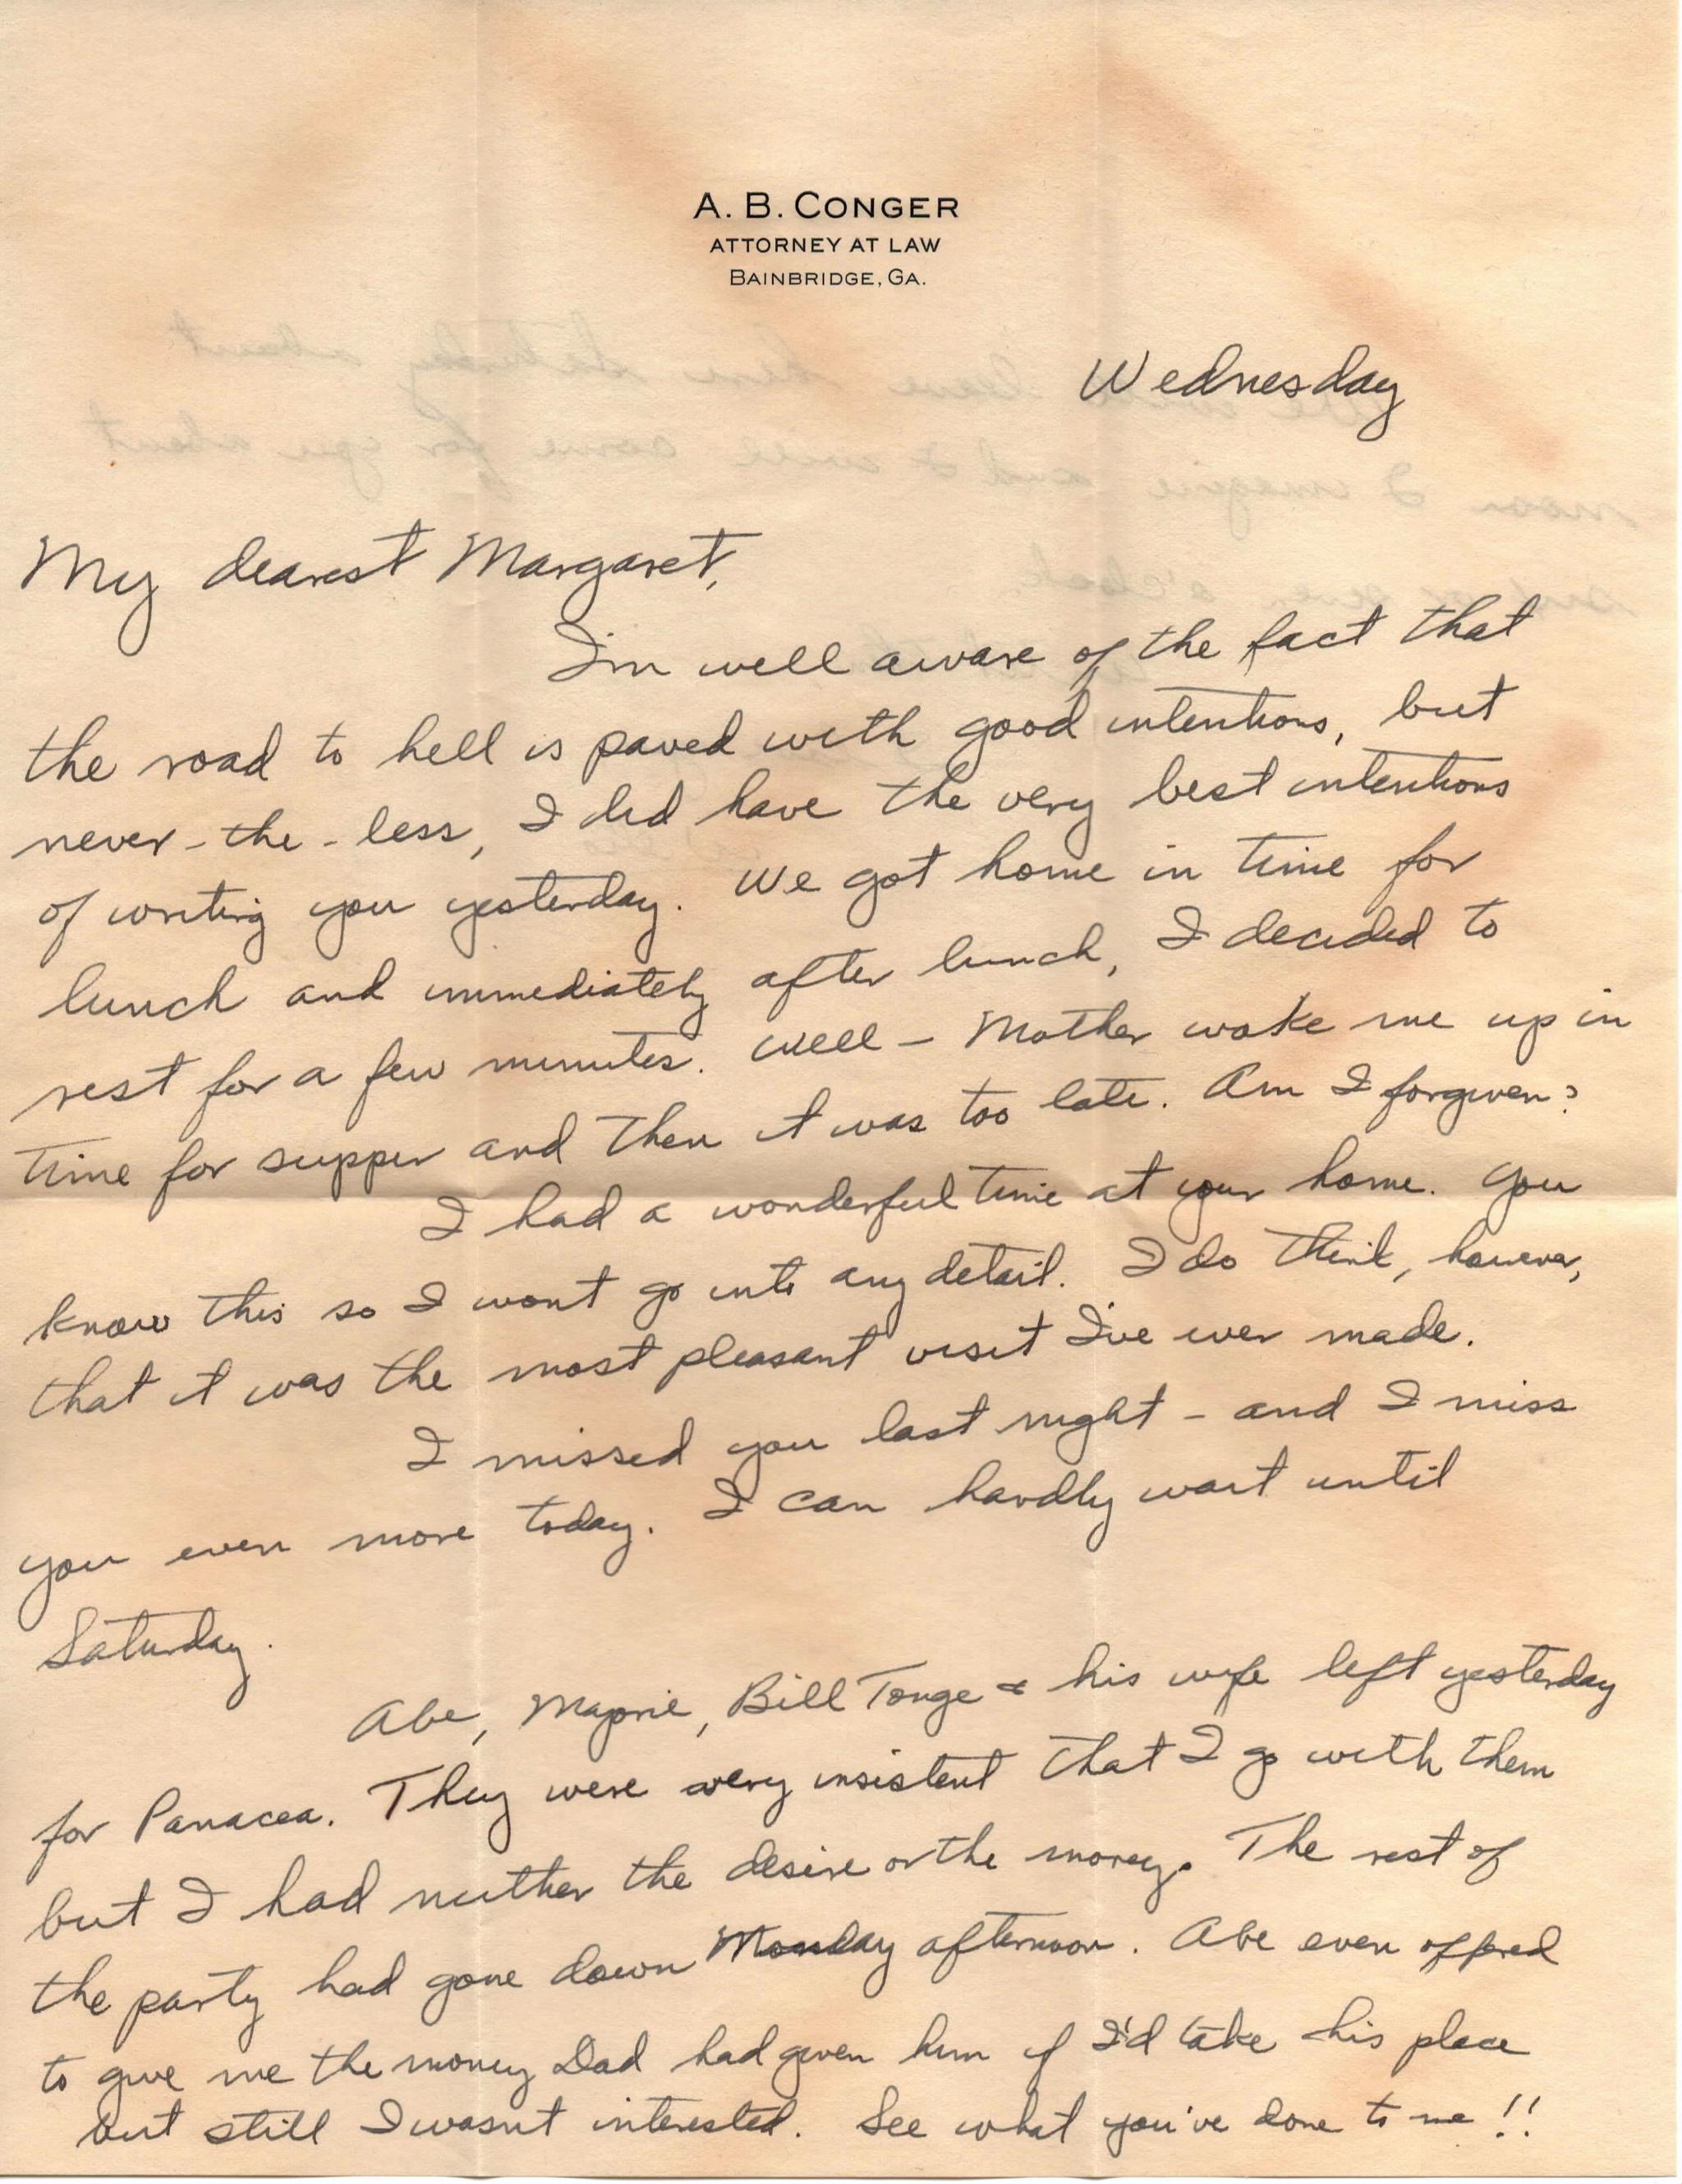 A. B. CONGER
ATTORNEY AT LAW
BAINBRIDGE, GA.
Wednesday
My dearest Margaret,
I'm well aware of the fact that
the road to hell is paved with good intentions, but
never-the-less, I did have the very best intentions
of writing you yesterday. We got home in time for
lunch and immediately after lunch, I decided to
rest for a few minutes. Well – Mother woke me up in
time for supper and then it was too late. Am I forgiven?
I had a wonderful time at your home. You
know this so I wont go into any detail. I do think, however,
that it was the most pleasant visit I've ever made.
I missed you last night – and I miss
you even more today. I can hardly wait until
Saturday.
Abe, Majorie, Bill Tonge & his wife left yesterday
for Panacea. They were very insistent that I go with them
but I had neither the desire or the money. The rest of
the party had gone down Monday afternoon. Abe even offered
to give me the money Dad had given him if I'd take his place
but still I wasn't interested. See what you've done to me!!